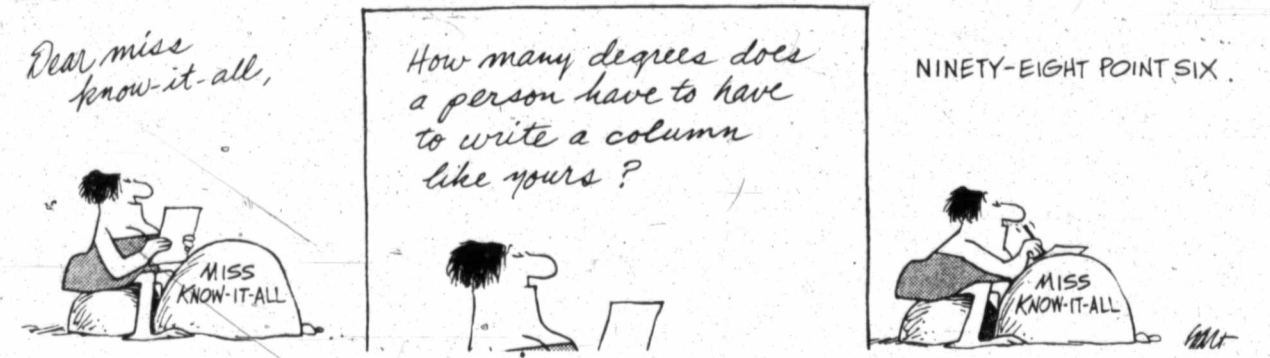 Dear miss
know-it-all,
MISS
KNOW-IT-ALL
How many degrees does
a person have to have
to write a column
like yours?
NINETY-EIGHT POINT SIX.
MISS
KNOW-IT-ALL
hart